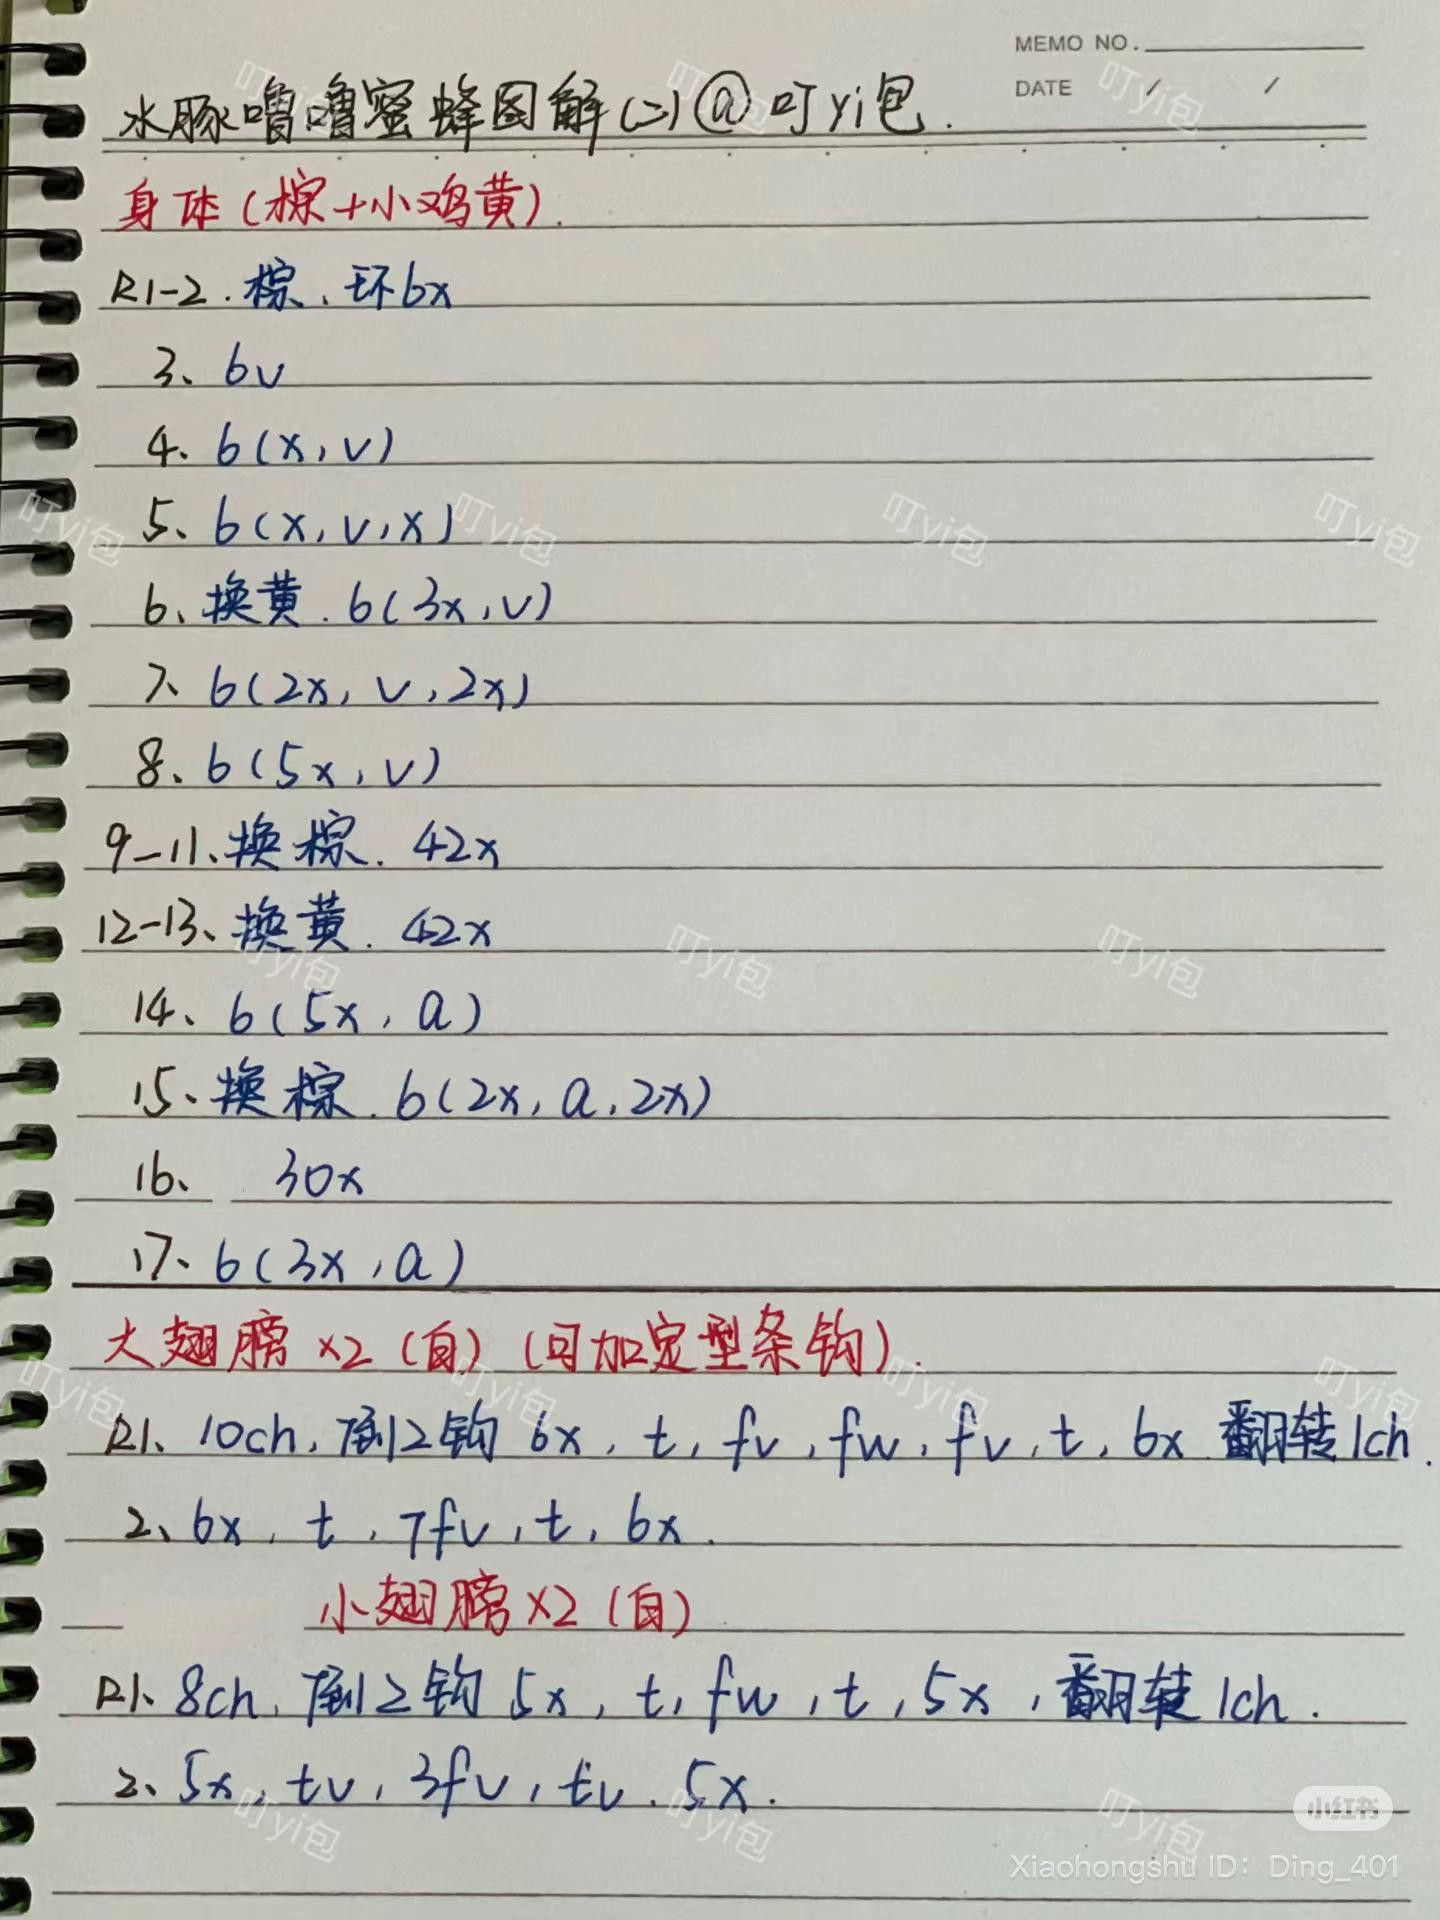 MEMO NO.
DATE / /
水豚噜噜蜜蜂图解(二)@叮yi包.
身体(棕+小鸡黄).
R1-2.棕、环6x
3、6v
4、6(x,v)
5、6(x,v,x)
6、换黄.6(3x,v)
7、6(2x,v,2x)
8、6(5x,v)
9-11、换棕.42x
12-13、换黄.42x
14、6(5x,a)
15、换棕.6(2x,a,2x)
16、30x
17、6(3x,a)
大翅膀x2(白)(可加定型条钩).
R1、10ch,倒2钩6x,t,fv,fw,fv,t,6x翻转1ch.
2、6x,t,7fv,t,6x.
小翅膀x2(白)
R1、8ch,倒2钩5x,t,fw,t,5x,翻转1ch.
2、5x,tv,3fv,tv.5x.
小红书
Xiaohongshu ID: Ding_401
叮yi包